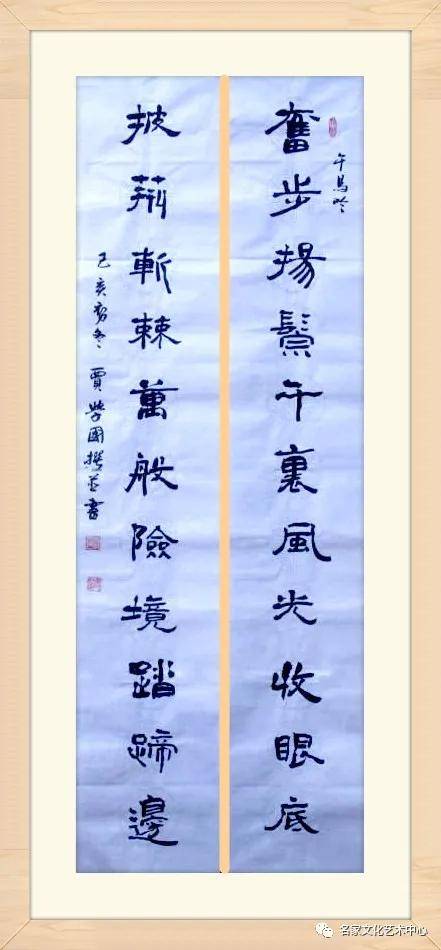 午馬吟
奮步揚鬃千裏風光收眼底
披荊斬棘萬般險境踏蹄邊
己亥初冬 賈學國撰並書
名家文化艺术中心